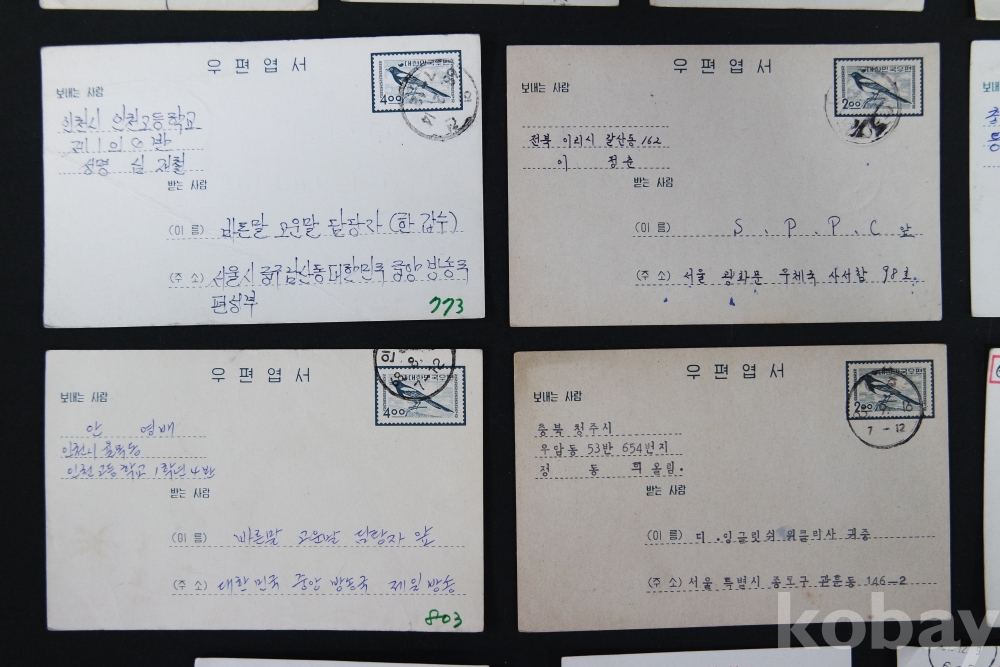 우편엽서
대한민국우편
400
보내는 사람
인천시 인천고등학교
제1의 8반
성명 심 재철
받는 사람
(이 름) 바른말 고운말 담당자 (한 갑수)
(주 소) 서울시 중구 남산동 대한민국 중앙 방송국
편성부
773
우편엽서
대한민국우편
200
보내는 사람
전북 이리시 갈산동 162
이 정순
받는 사람
(이 름) S. P. P. C 앞
(주 소) 서울 광화문 우체국 사서함 98호.
우편엽서
대한민국우편
400
7-12
보내는 사람
안 영배
인천시
인천고등학교 1학년 4반
받는 사람
(이 름) 바른말 고운말 담당자 앞
(주 소) 대한민국 중앙 방송국 제일방송
803
우편엽서
대한민국우편
200
7-12
보내는 사람
충북 청주시
우암동 53반 654번지
정 동 희 올림.
받는 사람
(이 름) 디. 잉글릿쉬 위클리사 귀중
(주 소) 서울 특별시 종로구 관훈동 146-2
보내
kobay